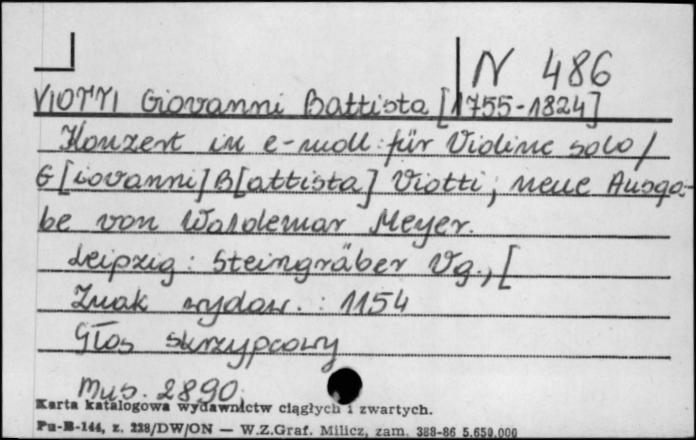 N 486
VIOTTI Giovanni Battista [1755-1824]
Konzert in e-moll für Violine solo /
G[iovanni] B[attista] Viotti; neue Ausga-
be von Waldemar Meyer.
Leipzig: Steingräber Vg., [
Znak wydaw.: 1154
Głos skrzypcowy
Mus. 2890
Karta katalogowa wydawnictw ciągłych i zwartych.
Pu-B-144, z. 228/DW/ON — W.Z.Graf. Milicz, zam. 388-86 5.650.000